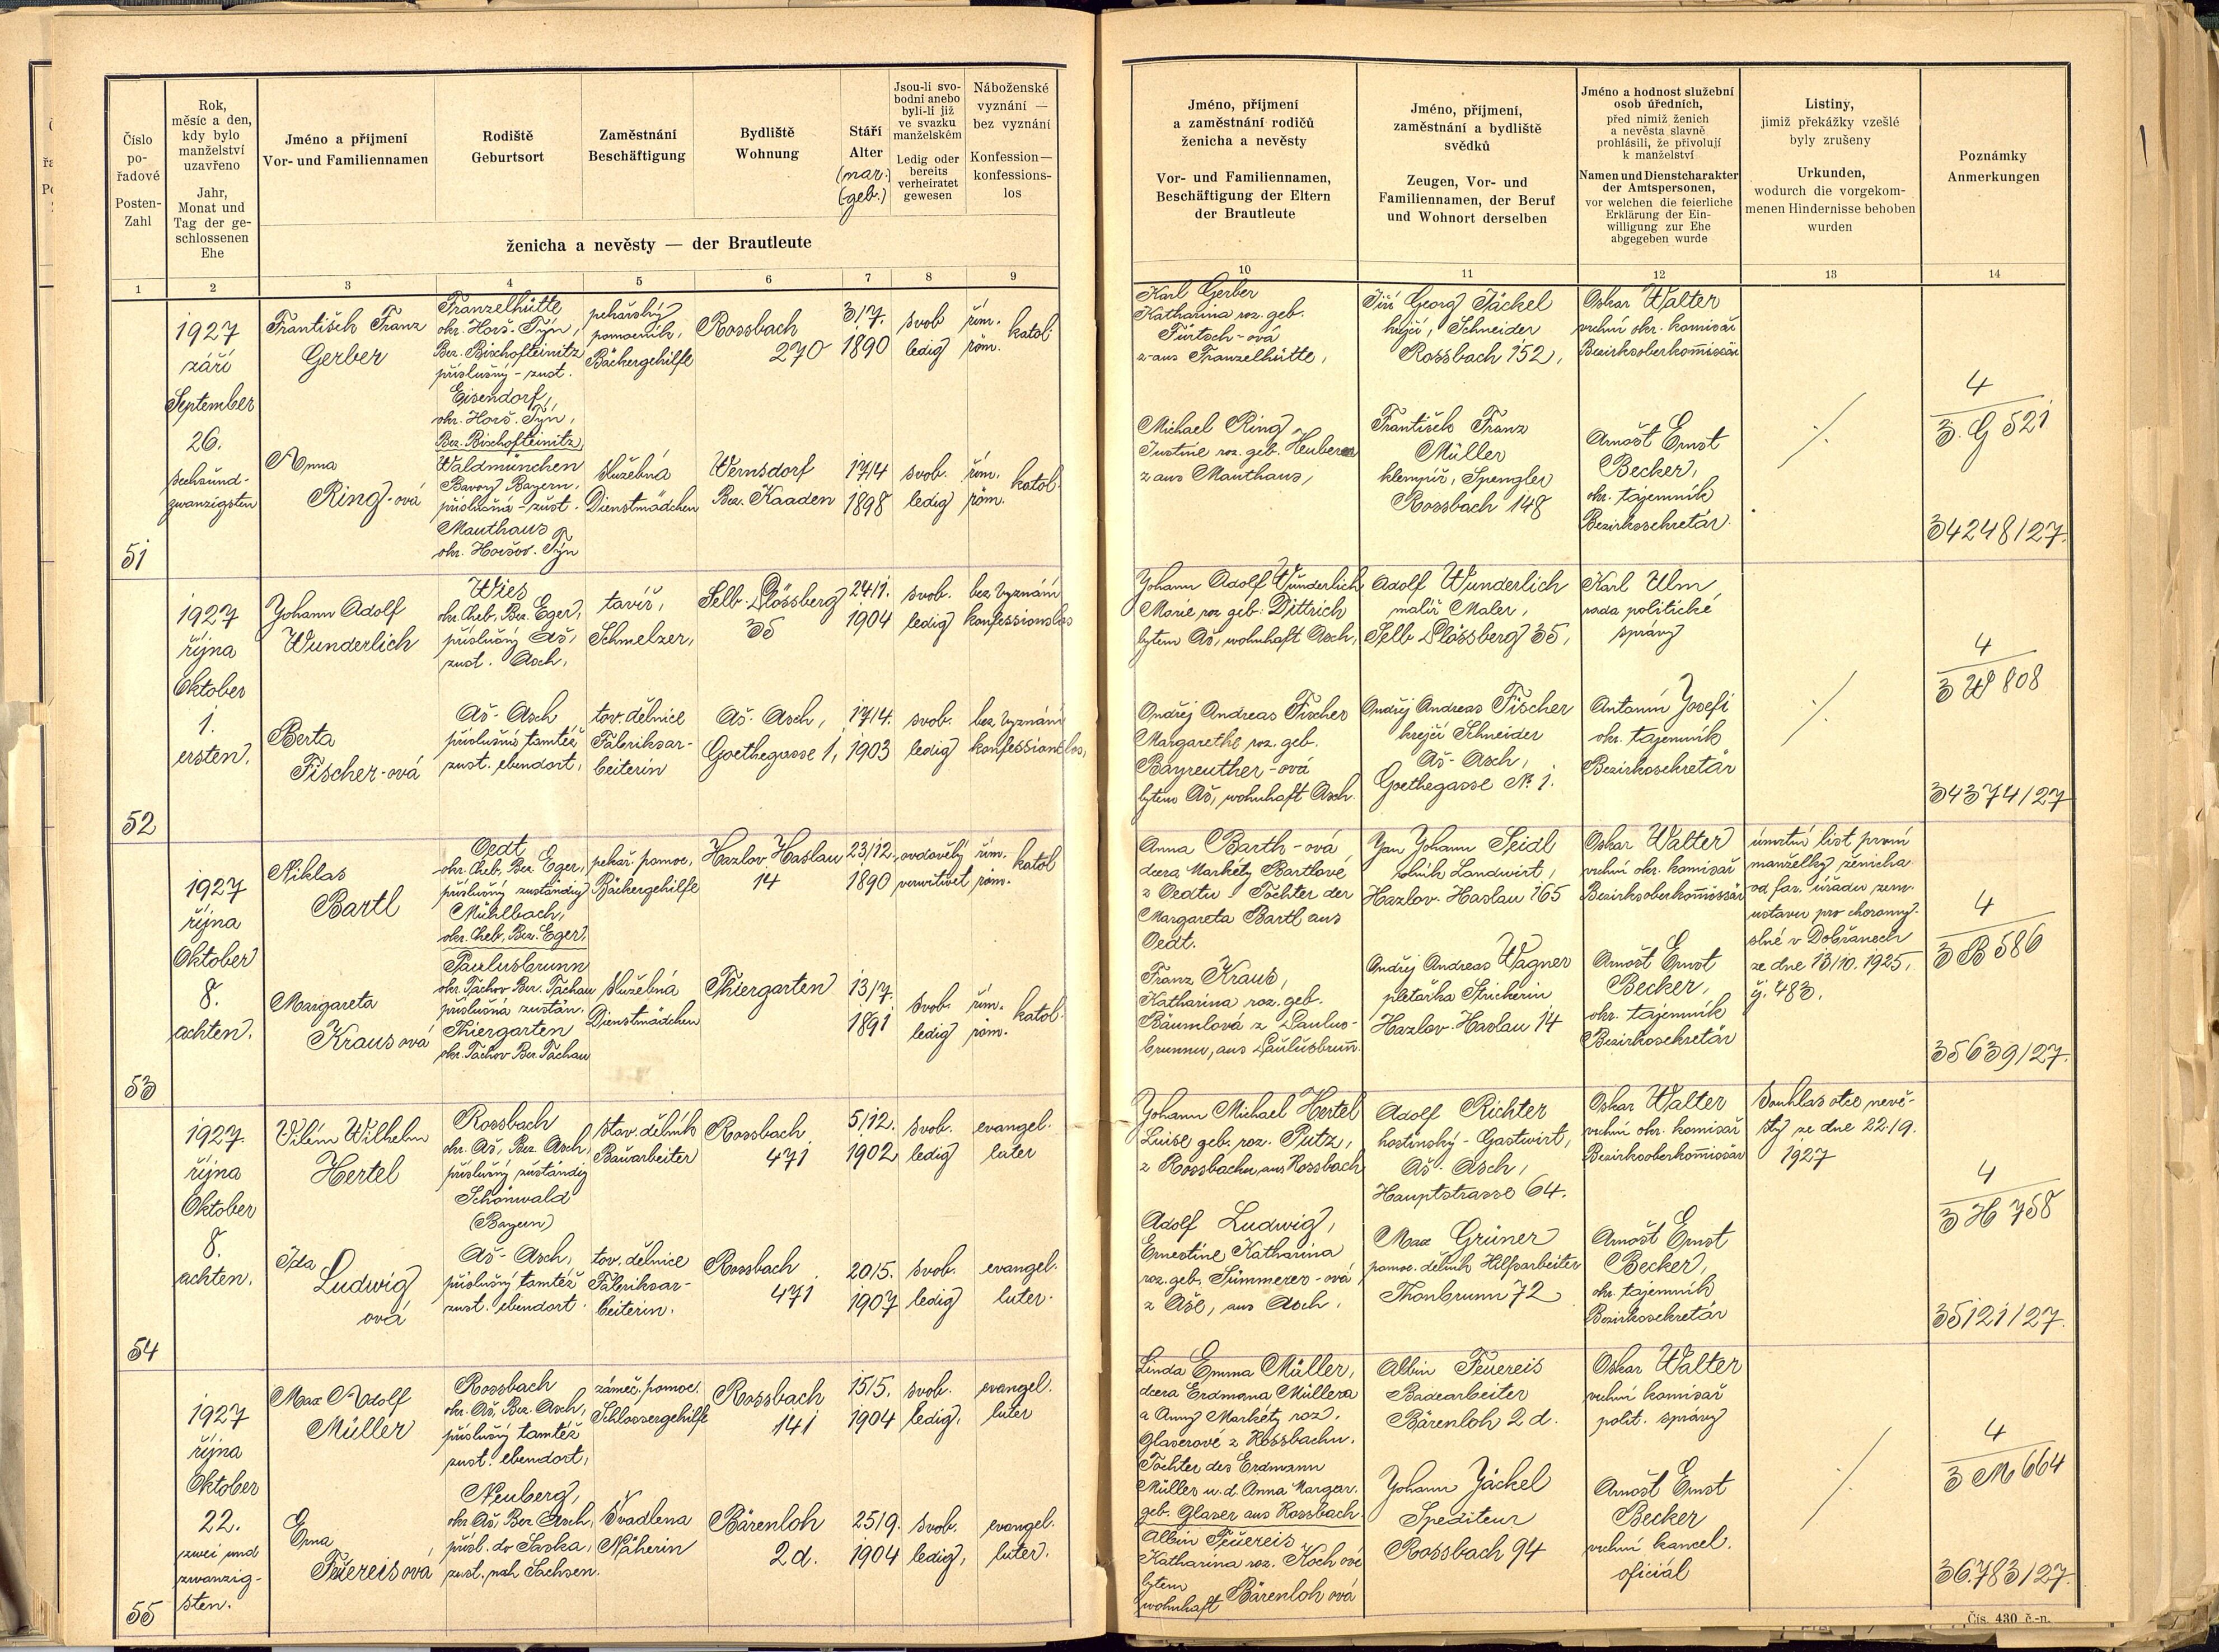 Číslo
po-
řadové
Posten-
Zahl
Rok,
měsíc a den,
kdy bylo
manželství
uzavřeno
Jahr,
Monat und
Tag der ge-
schlossenen
Ehe
Jméno a příjmení
Vor- und Familiennamen
Rodiště
Geburtsort
Zaměstnání
Beschäftigung
Bydliště
Wohnung
Stáří
Alter
(nar.)
(geb.)
Jsou-li svo-
bodni anebo
byli-li již
ve svazku
manželském
Ledig oder
bereits
verheiratet
gewesen
Náboženské
vyznání —
bez vyznání
Konfession—
konfessions-
los
ženicha a nevěsty — der Brautleute
Jméno, příjmení
a zaměstnání rodičů
ženicha a nevěsty
Vor- und Familiennamen,
Beschäftigung der Eltern
der Brautleute
Jméno, příjmení,
zaměstnání a bydliště
svědků
Zeugen, Vor- und
Familiennamen, der Beruf
und Wohnort derselben
Jméno a hodnost služební
osob úředních,
před nimiž ženich
a nevěsta slavně
prohlásili, že přivolují
k manželství
Namen und Dienstcharakter
der Amtspersonen,
vor welchen die feierliche
Erklärung der Ein-
willigung zur Ehe
abgegeben wurde
Listiny,
jimiž překážky vzešlé
byly zrušeny
Urkunden,
wodurch die vorgekom-
menen Hindernisse behoben
wurden
Poznámky
Anmerkungen
1 2 3 4 5 6 7 8 9 10 11 12 13 14
51
1927
září
September
26.
sechsund-
zwanzigsten
František Franz
Gerber
Franzelhütte
okr. Horš. Týn,
Bez. Bischofteinitz
příslušný - zust.
Eisendorf,
okr. Horš. Týn,
Bez. Bischofteinitz
pekařský
pomocník,
Bäckergehilfe
Rossbach
270
3/7.
1890
svob
ledig
řím.
röm.
katol.
Anna
Ring-ová
Waldmünchen
Bavory Bayern,
příslušná - zust.
Mauthaus
okr. Horšov. Týn
služebná
Dienstmädchen
Wernsdorf
Bez. Kaaden
17/4
1898
svob.
ledig
řím.
röm.
katol.
Karl Gerber
Katharina roz. geb.
Fürtsch-ová
z-aus Franzelhütte,
Michael Ring
Justine roz. geb. Heuberer
z aus Mauthaus,
Jiří Georg Jäckel
krejčí, Schneider
Rossbach 152,
František Franz
Müller
klempíř, Spengler
Rossbach 148
Oskar Walter
vrchní okr. komisař
Bezirksoberkommissär
Arnošt Ernst
Becker,
okr. tajemník
Bezirkssekretär.
4
3. G 521
34248/27.
52
1927
října
Oktober
1.
ersten.
Johann Adolf
Wunderlich
Wies
okr. Cheb, Bez. Eger,
příslušný Aš,
zust. Asch,
tavíř,
Schmelzer,
Selb-Plössberg
35
24/1.
1904
svob.
ledig
bez vyznání
konfessionslos
Berta
Fischer-ová
Aš-Asch
příslušná tamtéž
zust. ebendort,
tov. dělnice
Fabriksar-
beiterin
Aš-Asch,
Goethegasse 1,
17/4.
1903
svob.
ledig
bez vyznání
konfessionslos,
Johann Adolf Wunderlich
Marie roz geb. Dittrich
bytem Aš, wohnhaft Asch,
Ondřej Andreas Fischer
Margarethe roz. geb.
Bayreuther-ová
bytem Aš, wohnhaft Asch.
Adolf Wunderlich
malíř Maler,
Selb Plössberg 35,
Ondřej Andreas Fischer
krejčí Schneider
Aš-Asch,
Goethegasse № 1.
Karl Ulm
rada politické
správy
Antonín Josefi
okr. tajemník
Bezirkssekretär
4
3 W 808
34374/27
53
1927
října
Oktober
8.
achten.
Niklas
Bartl
Oedt,
okr. Cheb, Bez. Eger,
příslušný zuständig
Mühlbach,
okr. Cheb, Bez. Eger,
pekař. pomoc.
Bäckergehilfe
Hazlov Haslau
14
23/12.
1890
ovdovělý
verwitwet
řím.
röm.
katol
Margareta
Krausová
Paulusbrunn
okr. Tachov Bez. Tachau
příslušná zustän.
Thiergarten
okr. Tachov Bez. Tachau
služebná
Dienstmädchen
Thiergarten
13/7.
1891
svob.
ledig
řím.
röm.
katol.
Anna Barth-ová
dcera Markéty Bartlové
z Oedtu Tochter der
Margareta Bartl aus
Oedt.
Franz Kraus,
Katharina roz. geb.
Bäumlová z Paulus-
brunnu, aus Paulusbrunn.
Jan Johann Seidl
rolník Landwirt,
Hazlov-Haslau 165
Ondřej Andreas Wagner
pletařka Strickerin
Hazlov-Haslau 14
Oskar Walter
vrchní okr. komisař
Bezirksoberkommissär
Arnošt Ernst
Becker,
okr. tajemník
Bezirkssekretär
úmrtní list první
manželky ženicha
od far. úřadu zem.
ustavu pro choromy-
slné v Dobřanech
ze dne 13/10. 1925,
čj. 483.
4
3 B 586
35639/27.
54
1927.
října
Oktober
8.
achten.
Vilém Wilhelm
Hertel
Rossbach
okr. Aš, Bez. Asch
příslušný zuständig
Schönwald
(Bayern)
stav. dělník
Bauarbeiter
Rossbach
471
5/12.
1902
svob.
ledig
evangel.
luter
Ida
Ludwig
ová
Aš-Asch,
příslušný tamtéž
zust. ebendort.
tov. dělnice
Fabriksar-
beiterin.
Rossbach
471
20/5.
1907
svob.
ledig
evangel.
luter.
Johann Michael Hertel
Luise geb. roz. Putz,
z Rossbachu, aus Rossbach
Adolf Ludwig,
Ernestine Katharina
roz. geb. Sümmerer-ová
z Aše, aus Asch.
Adolf Richter
hostinský-Gastwirt,
Aš-Asch,
Hauptstrasse 64.
Max Grüner
pomoc. dělník Hilfsarbeiter
Thonbrunn 72
Oskar Walter
vrchní okr. komisař
Bezirksoberkommissär
Arnošt Ernst
Becker,
okr. tajemník
Bezirkssekretär
Souhlas otce nevě-
sty ze dne 22/9.
1927
4
3 H 758
35121/27.
55
1927
října
Oktober
22.
zwei und
zwanzig-
sten.
Max Adolf
Müller
Rossbach
okr. Aš, Bez. Asch,
příslušný tamtéž
zust. ebendort,
zámeč. pomoc.
Schlossergehilfe
Rossbach
141
15/5.
1904
svob.
ledig,
evangel.
luter
Erna
Feuereisová
Neuberg,
okr Aš, Bez Asch,
přísl. do Saska,
zust. nah Sachsen.
Švadlena
Näherin
Bärenloh
2d.
25/9.
1904
svob.
ledig,
evangel.
luter.
Linda Emma Müller,
dcera Erdmana Müllera
a Anny Markéty roz.
Glaserové z Rossbachu.
Tochter des Erdmann
Müller u. d. Anna Margar.
geb. Glaser aus Rossbach.
Albin Feuereis
Katharina roz. Koch ová
bytem
wohnhaft Bärenloh ová
Albin Feuereis
Badearbeiter
Bärenloh 2 d.
Johann Jäckel
Spediteur
Rossbach 94
Oskar Walter
vrchní komisař
polit. správy
Arnošt Ernst
Becker
vrchní kancel.
oficiál
4
3 M 664
36.783/27.
Čís. 430 č.-n.